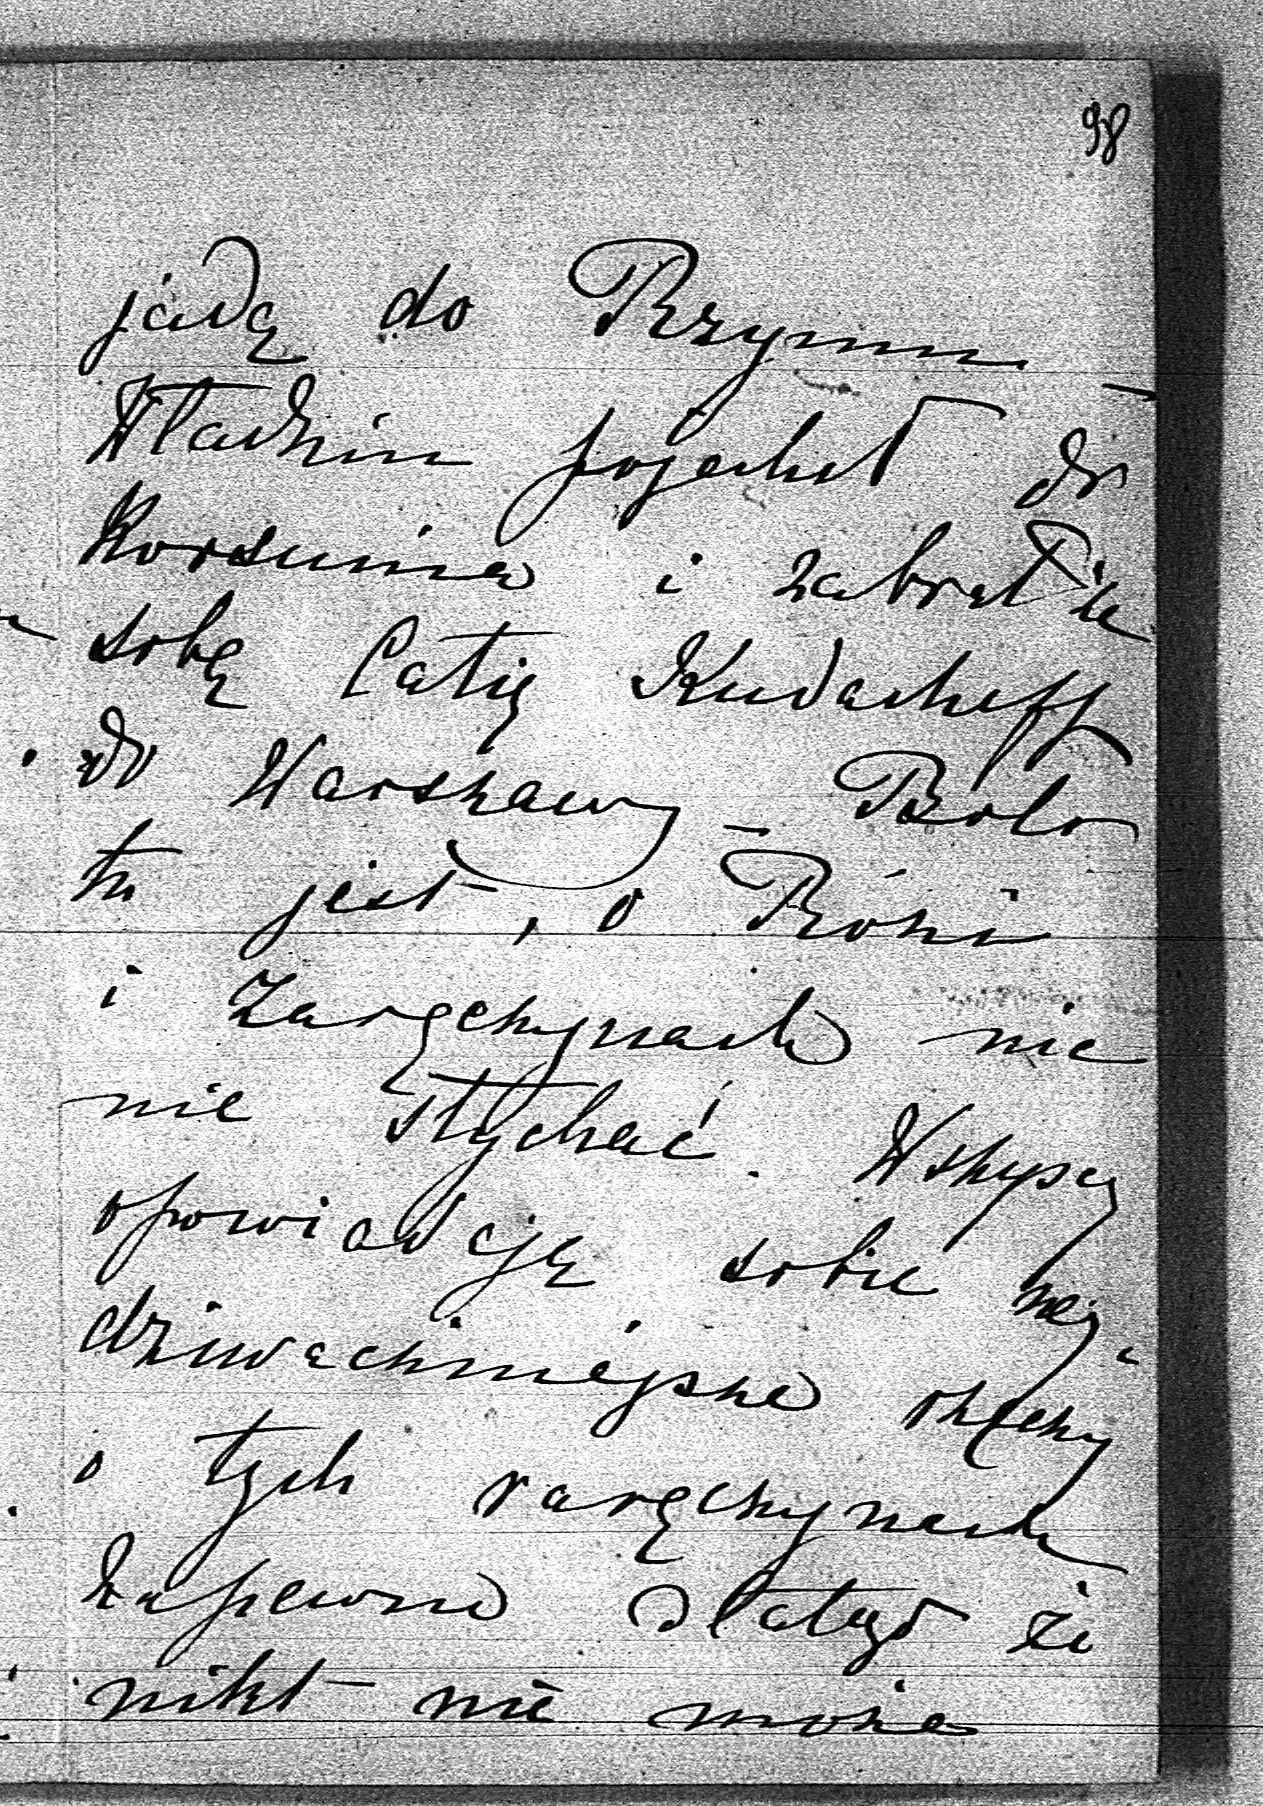 98
jadą do Rzymu –
Władzin pojechał do
Korsunia i zabrał ze
sobą Catię Kudacheff
do Warszawy –
tu jest, o Rózi
i Zaręczynach nic
nie słychać. Wszyscy
opowiadają sobie naj-
dziwaczniejsze rzeczy
o tych zaręczynach
Zapewne dlatego że
nikt nie może